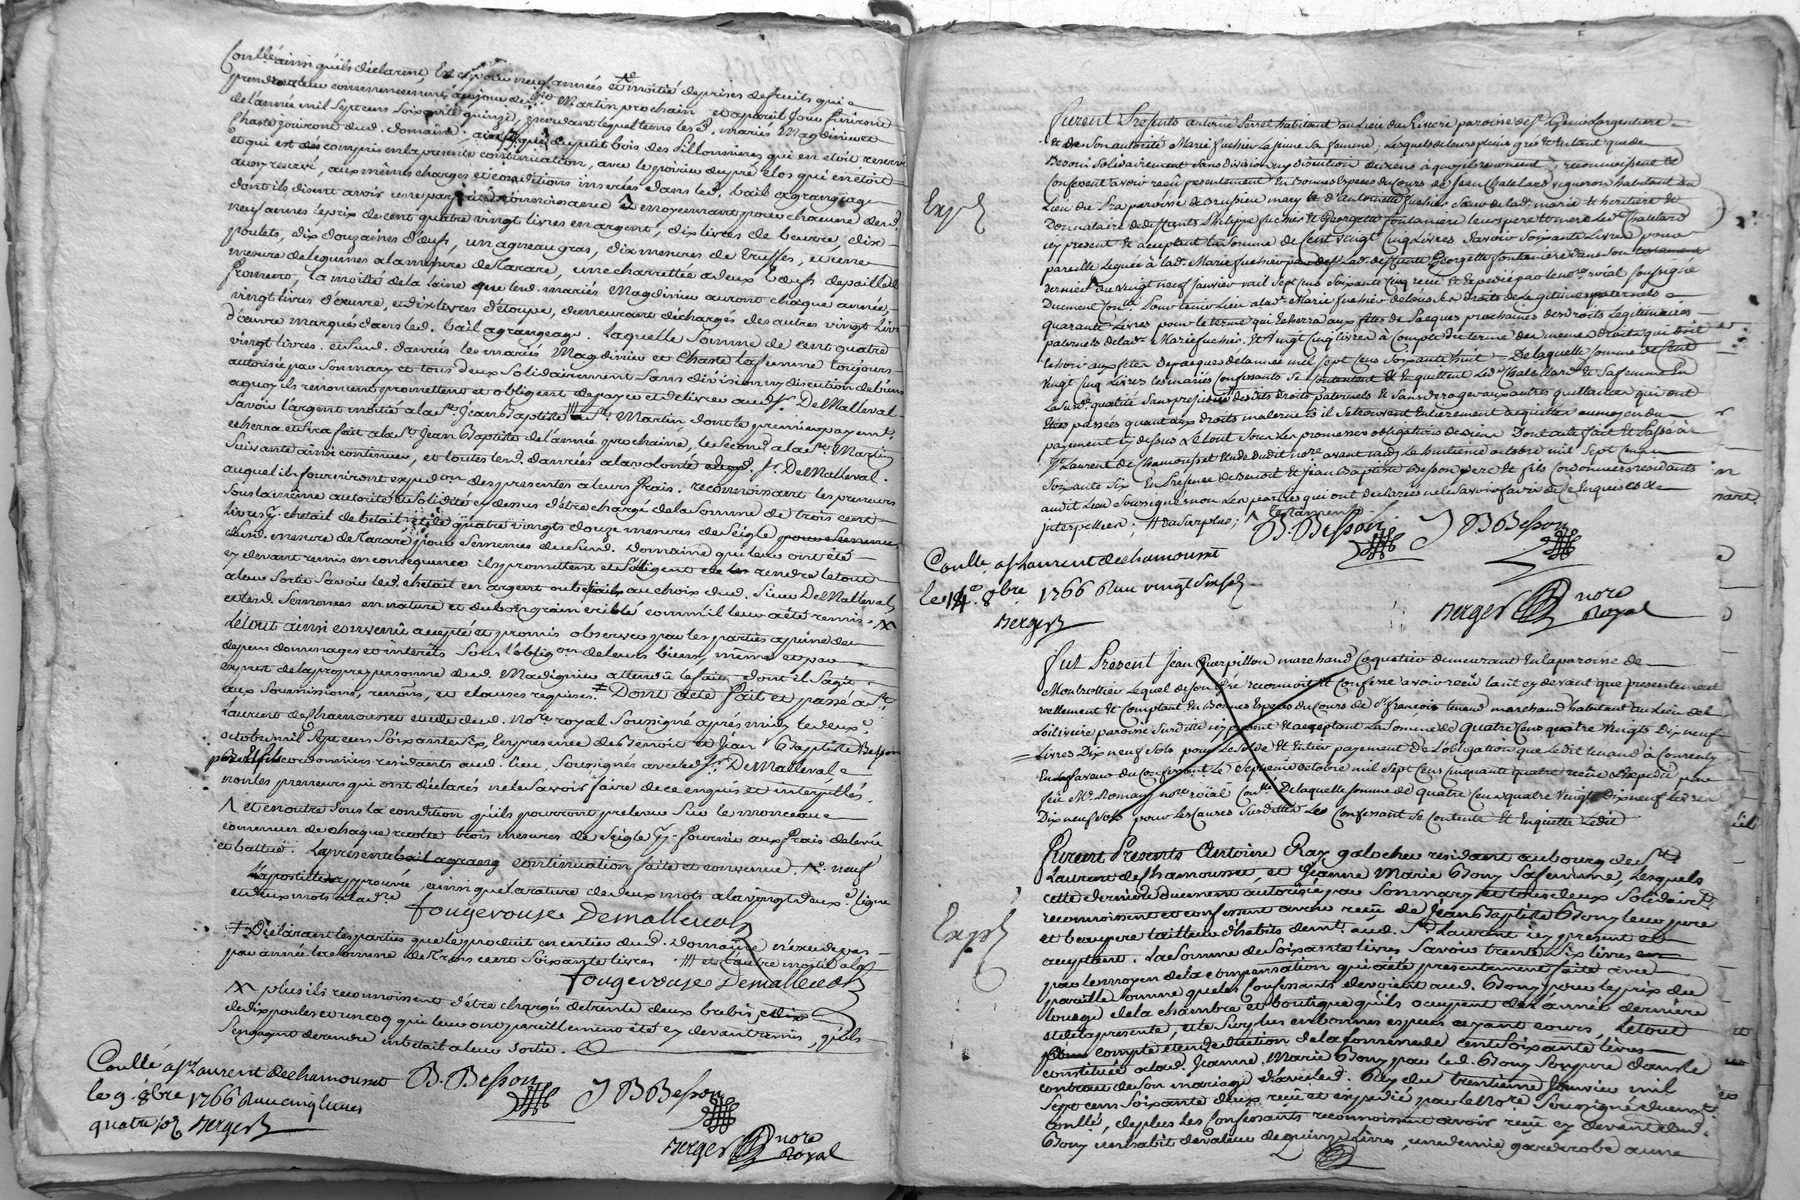 Conllé ainsi qu'ils déclarent, Et ce pour neuf années et moitié de prises de fruits qui
prendront leur commencement au jour de fête St Martin prochain et a pareil Jour finiront
de l'année mil Sept cens Soixante quinze, pendant lequel tems les d. mariés Magdinier et
Chaste jouiront dud. Domaine ainsi que du petit bois des Sillonnieres qui en etoit reservé
et qui est compris en la presente continuation, avec le poirier du pré clos qui en etoit
aussy reservé, aux mêmes charges et conditions inserées dans led. bail a grangeage
dont ils disent avoir une parfaite connoissance et moyennant pour chacune desd.
neuf années le prix de cent quatre vingt livres en argent, dix livres de beurre, dix
poulets, dix douzaines d'œufs, un agneau gras, dix mesures de truffes, et une
mesure de legumes a la mesure de Tarare, une charrettée a deux bœufs de paille de
froment, la moitié de la laine que lesd. mariés Magdinier auront chaque année,
vingt livres d'œuvre, et dix livres d'étoupe, demeurant déchargés des autres vingt livres
d'œuvre marqués dans led. bail a grangeage. Laquelle Somme de cent quatre
vingt livres. et susd. danrées les mariés Magdinier et Chaste sa femme toujours
autorisée par Son mary et tous deux Solidairement Sans division ny discution de biens
a quoy ils renoncent promettent et obligent de payer et delivrer aud. Sr. DeMalleval
Savoir l'argent moitié a la St. Jean Baptiste /// St. Martin dont le premier payemt.
echerra et sera fait a la St. Jean Baptiste de l'année prochaine, le Second a la St. Martin
Suivante ainsi continuer, et toutes lesd. danrées a la volonté dud. Sr. DeMalleval.
auquel ils fourniront expedon des presentes a leurs frais. reconnoissant les preneurs
Sous la même autorité et Solidité cy dessus d'être chargé de la Somme de trois cent
Livres chetail de betail et de quatre vingts douze mesures de Seigle
mesure de Tarare pour Semences du susd. Domaine qui leur ont été
cy devant remis en consequence ils promettent et s'obligent de rendre le tout
a leur Sortie Savoir led. chetail en argent ou betail au choix dud. Sieur DeMalleval,
et lesd. Semences en nature et du bon grain criblé comm'il leur a été remis.
Le tout ainsi convenu accepté et promis observer par les parties a peine de
depens dommages et interêts Sous l'oblig.on de leurs biens, même et par
exprest de la propre personne dud. Magdinier attendu le fait dont il S'agit
aux Soumissions, renons, et clauses requises. Dont acte fait et passé a St.
Laurent de Chamousset etude dud. Nore. royal Soussigné après midy le deux
octobre mil Sept cens Soixante Six, En presence de Benoit et Jean Baptiste Besson
père et fils cordonniers residants aud. lieu, Soussignés avec led. Sr. DeMalleval
non les preneurs qui ont déclarés ne le Savoir faire de ce enquis et interpellés.
Λ et en outre Sous la condition qu'ils pourront prelever Sur le monceau
commun de chaque recolte trois mesures de Seigle pour fournir aux frais de levée
et battue. La presente bail a grang. continuation faite et convenue. neuf
L'apostille approuvée, ainsi que la rature de deux mots a la vingt deux.e ligne
et deux mots a lad. re
fougerouse Demalleval
≠ Déclarant les parties que le produit en entier dud. Domaine n'excede pas
par année la somme de trois cent Soixante livres. /// et l'autre moitié a la
fougerouse Demalleval
plus ils reconnoissent d'être chargés de trente deux brebis,
de dix poules et un coq qui leur ont pareillement été cy devant remis, qu'ils
S'engagent de rendre en betail a leur Sortie.
Conllé a St Laurent de chamousset B. Besson J B Besson
le 9. 8bre 1766 Reçu cinq livres
quatre s. Berger
Berger nore Royal
Furent Presents antoine Perret habitant au Lieu du Riviere paroisse de St. Genis L'argentiere
& de Son autorité Marie fuchier La jeune Sa femme, Lesquels de leurs pleins gres & En tant que de
Besoin Solidairement Sans division ny discution de biens a quoy ils renoncent, reconnoissent &
Confessent avoir reçû presentement En Bonnes Especes du Cours de Jean Chatelard vigneron habitant au
Lieu du Pra paroisse de Brussieu mary & d'antoinette fuchier Sœur de lad. marie & heritiere &
Donnataire de deffunts Philippe fuchier & Georgette fontaniere leurs pere & mere Led. Chatelard
icy present & acceptant La Somme de Cent vingt Cinq Livres Savoir Soixante Livres pour
pareille Leguée à lad. Marie fuchier par deff. lad. deffunte Georgette fontaniere dans Son testament
dernier du vingt neuf Janvier mil Sept Cens Soixante Cinq reçû & Expedié par le nore roïal Soussigné
Duement Conlé. pour tenir Lieu a lad. Marie fuchier de tous Ses Droits de Legitime maternels
quarante Livres pour le terme qui Echerra aux fêtes de Pasques prochaines de Ses Droits Legitimaires
paternels de lad. Marie fuchier, & Vingt Cinq Livres à Compte du terme des memes droits qui doit
Echoir aux fêtes de Paques de l'année mil Sept Cens Soixante huit – De laquelle Somme de Cent
Vingt Cinq Livres les mariés Confessants Se Contentent & En quittent Led. Chatellard & Sa femme En
La Susd. qualité Sans prejudice des dits Droits paternels & Sans deroger aux autres quittances qui ont
Etés passées quant aux Droits maternels ils Se trouvent Entierement acquittés au moyen du
payement cy dessus Le tout Sous Les promesses obligations de biens Dont acte fait & Passé à
St. Laurent de Chamousset Etude dudit nore. avant midy Le huitieme octobre mil Sept Cens
Soixante Six En Presence de Benoit & Jean Baptiste Besson pere & fils Cordonniers residants
audit Lieu Soussignés non Les parties qui ont declarées ne le Savoir faire de Ce Enquises &
interpellées, // du Surplus; Λ testament
B. Besson J B Besson
Conllé a St Laurent de chamousset
le 14e. 8bre 1766 Reçu vingt six s.
Berger
Berger nore Royal
Expé
Fut Présent Jean Guerpillon marchand Coquetier demeurant En la paroisse de
Montrottier Lequel de son Gré reconnoit & Confesse avoir reçû tant cy devant que presentement
réellement & Comptant En Bonnes Especes du Cours de Sr. françois tenaud marchand habitant au Lieu de
L'oliviere paroisse Susditte icy present & acceptant La Somme de Quatre Cens quatre Vingts Dix neuf
Livres Dix neuf Sols pour Le Solde & Entier payement de L'obligation que Ledit tenaud à Consenty
En La faveur du Confessant Le Septieme octobre mil Sept Cens Cinquante quatre reçûe & Expediée par
feu Me. Romany nore roïal Conllé De laquelle Somme de Quatre Cens quatre Vingts Dix neuf Livres
Dix neuf Sols pour Les Causes Susdittes Led. Confessant Se Contente & En quitte Ledit
Expé
Furent Presents Antoine Ray galocher residant au bourg de St.
Laurent de Chamousset et Jeanne Marie Bony Sa femme, Lesquels
cette derniere duement autorisée par Son mary et tous deux Solidairemt.
reconnoissent et confessent avoir reçu de Jean Baptiste Bony leur pere
et beaupere tailleur d'habits demt. aud. St. Laurent icy present et
acceptant. La Somme de Soixante livres Savoir trente Six livres
par le moyen de la compensation qui a été presentement faite avec
pareille Somme que les confessants devoient aud. Bony pour le prix du
louage de la chambre et boutique qu'ils occupent de l'année derniere
et de la presente, et le Surplus en bonnes especes ayant cours, Le tout
compte et en deduction de la Somme de cent Soixante livres
constituée a lad. Jeanne Marie Bony par led. Bony Son pere dans le
contrat de Son mariage d'avec led. Ray du trentieme Janvier mil
Sept cens Soixante deux reçu et expedié par le Nore Soussigné duement
conllé, de plus Les Confessants reconnoissent avoir reçu cy devant dud.
Bony un habit de valeur de quinze livres, une demie garderobe a une